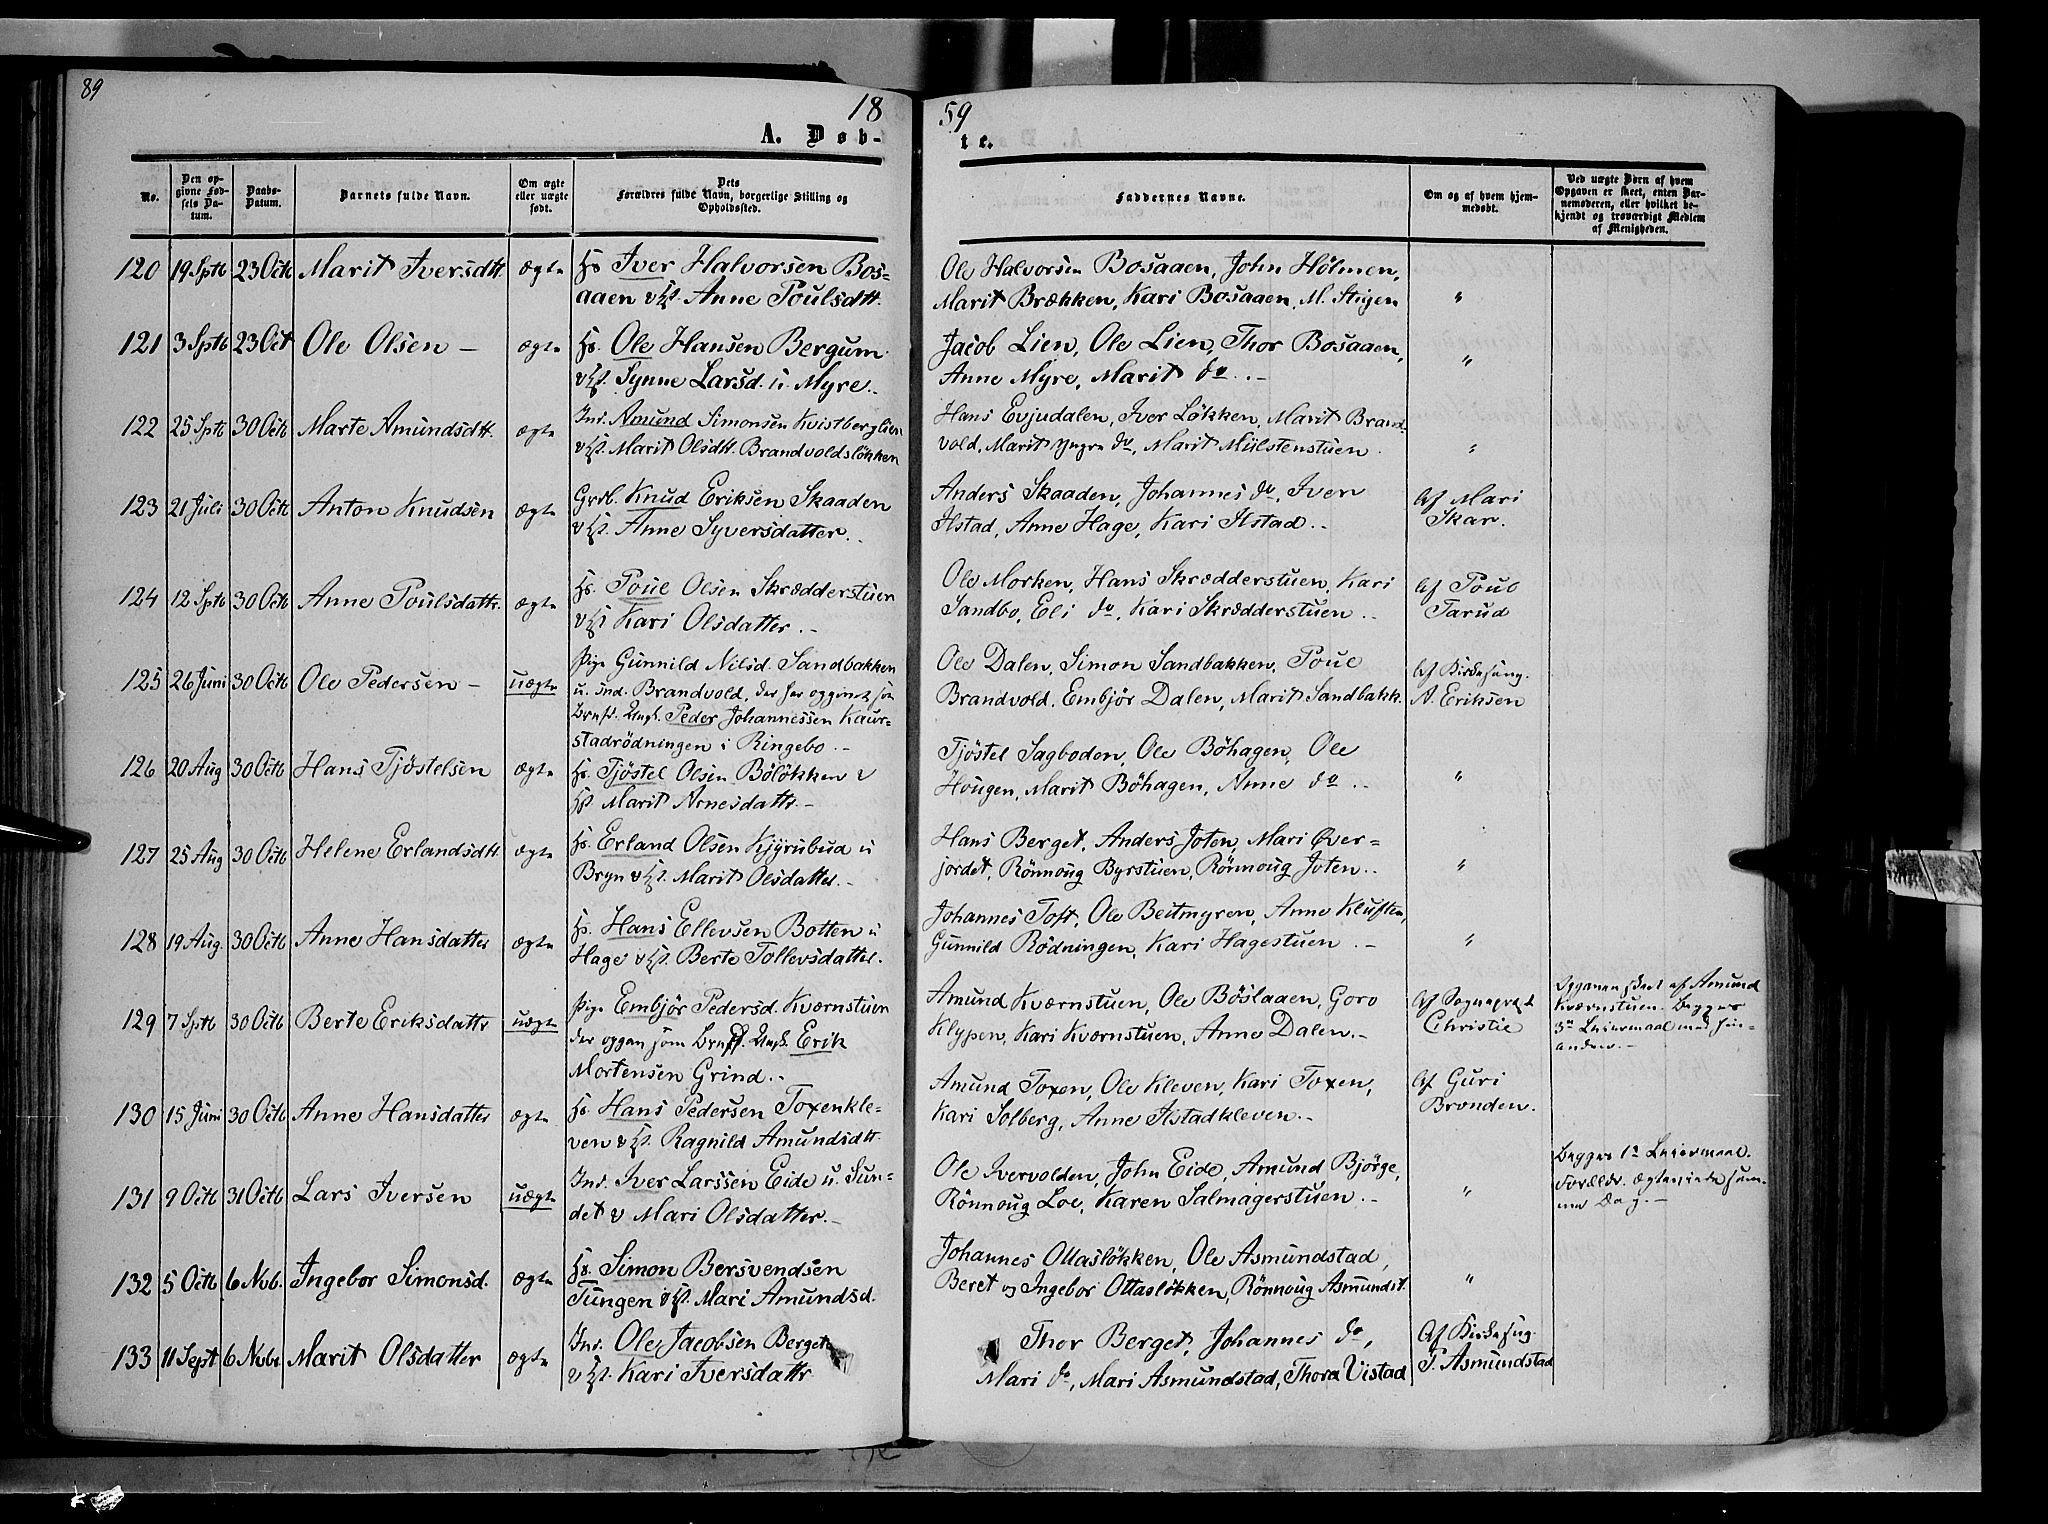 89
18
59
A. Døb-
te.
No.
Den op-
givne Fød-
sels Da-
tum.
Daabs-
Datum.
Barnets fulde Navn.
Om ægte
eller uægte
født.
Dets
Forældres fulde Navn, borgerlige Stilling og
Opholdssted.
Faddernes Navne.
Om og af hvem hjem-
medøbt.
Ved uægte Børn af hvem
Opgaven er skeet, enten Bar-
nemoderen, eller hvilket be-
kjendt og troværdigt Medlem
af Menigheden.
120 19 Sptb 23 Octb Marit Iversdtt. ægte Hs Iver Halvorsen Bos-
aaen v Hst. Anne Poulsdtt.
Ole Halvorsen Bosaaen, John Hølmen,
Marit Brækken, Kari Bosaaen, M. Stigen "
121 3 Sptb 23 Oct Ole Olsen – ægte Hs. Ole Hansen Bergum
v Hst. Synne Larsd. u. Myre.
Jacob Lien, Ole Lien, Thor Bosaaen,
Anne Myre, Marit do. – "
122 25 Sptb 30 Octb Marte Amundsdtt. ægte Ind. Amund Simonsen Kvistberglien
v Hst. Marit Olsdtt. Brandvoldsløkken
Hans Evjudalen, Iver Løkken, Marit Brand-
vold, Marit yngre do, Marit Mülstenstuen. "
123 21 Juli 30 Octb Anton Knudsen ægte Grdb. Knud Eriksen Skaaden
v Hst. Anne Syversdatter.
Anders Skaaden, Johannes do, Iver
Ilstad, Anne Hage, Kari Ilstad.
Af Mari
Skar.
124 12 Sptb 30 Octb Anne Poulsdattr. ægte Hs. Poul Olsen Skrædderstuen
v Hst Kari Olsdatter. –
Ole Morken, Hans Skrædderstuen, Kari
Sandbo, Eli do, Kari Skrædderstuen.
Af Poul
Tarud
125 26 Juni 30 Octb Ole Pedersen – uægte Pige Gunnild Nilsd. Sandbakken
u. ind. Brandvold, der har opgivet som
Brnf. Ungk. Peder Johannessen Kaur-
stadrödningen i Ringebo. –
Ole Dalen, Simon Sandbakken, Poul
Brandvold, Embjör Dalen, Marit Sandbakk.
Af Kirkesang.
A. Eriksen
126 20 Aug 30 Octb Hans Tjöstelsen ægte Hs. Tjöstel Olsen Bölökken v
Hst Marit Arnesdattr. –
Tjöstel Sagboden, Ole Böhagen, Ole
Hougen, Marit Böhagen, Anne do. "
127 25 Aug 30 Octb Helene Erlandsdtt. ægte Hs. Erland Olsen Kjyrubud u
Bryn v Hst. Marit Olsdatter. –
Hans Berget, Anders Joten, Mari Över-
jordet, Rönnoug Byrstuen, Rönnoug Joten. "
128 19 Aug. 30 Octb Anne Hansdatter ægte Hs. Hans Ellevsen Botten u
Hage v Hst. Berte Tollevsdatter.
Johannes Toft, Ole Beitmyren, Anne Kluften,
Gunnild Rödningen, Kari Hagestuen. – "
129 7 Sptb 30 Octb Berte Eriksdattr uægte Pige Embjör Pedersd. Kværnstuen
der opgav som Brnf. Ungk. Erik
Mortensen Grind. –
Amund Kværnstuen, Ole Böslaaen, Goro
Klypen, Kari Kværnstuen, Anne Dalen. –
Af Sognepræst
Christie
Opgaven skeet af Amund
Kværnstuen. Begges
3die Leiermaal med hin-
anden. –
130 15 Juni 30 Octb Anne Hansdatter ægte Hs. Hans Pedersen Toxenkle-
ven v Hst. Ragnild Amundsdtt.
Amund Toxen, Ole Kleven, Kari Toxen,
Kari Solberg, Anne Ilstadkleven. –
Af Guri
Brenden.
131 9 Octb 31 Octb Lars Iversen uægte Ind. Iver Larssen Eide u. Sun-
det v Mari Olsdatter. –
Ole Ivervolden, John Eide, Amund Bjørge,
Rönnoug Loe, Karen Salmagerstuen. – "
Begges 1ste Leiermaal.
Forældr. ægteviede sam-
me Dag. –
132 5 Octb 6 Nvb. Ingebor Simonsd. ægte Hs. Simon Bersvendsen
Tungen v Hst. Mari Amundsd.
Johannes Ottasløkken, Ole Asmundstad,
Beret og Ingebor Ottasløkken, Rönnoug Asmundst. "
133 11 Sept 6 Nvbr Marit Olsdatter ægte Ind. Ole Jacobsen Berget
v Hst. Kari Iversdattr
Thor Berget, Johannes do,
Mari do, Mari Asmundstad, Thora Vistad
Af Kirkesag.
P. Asmundstad